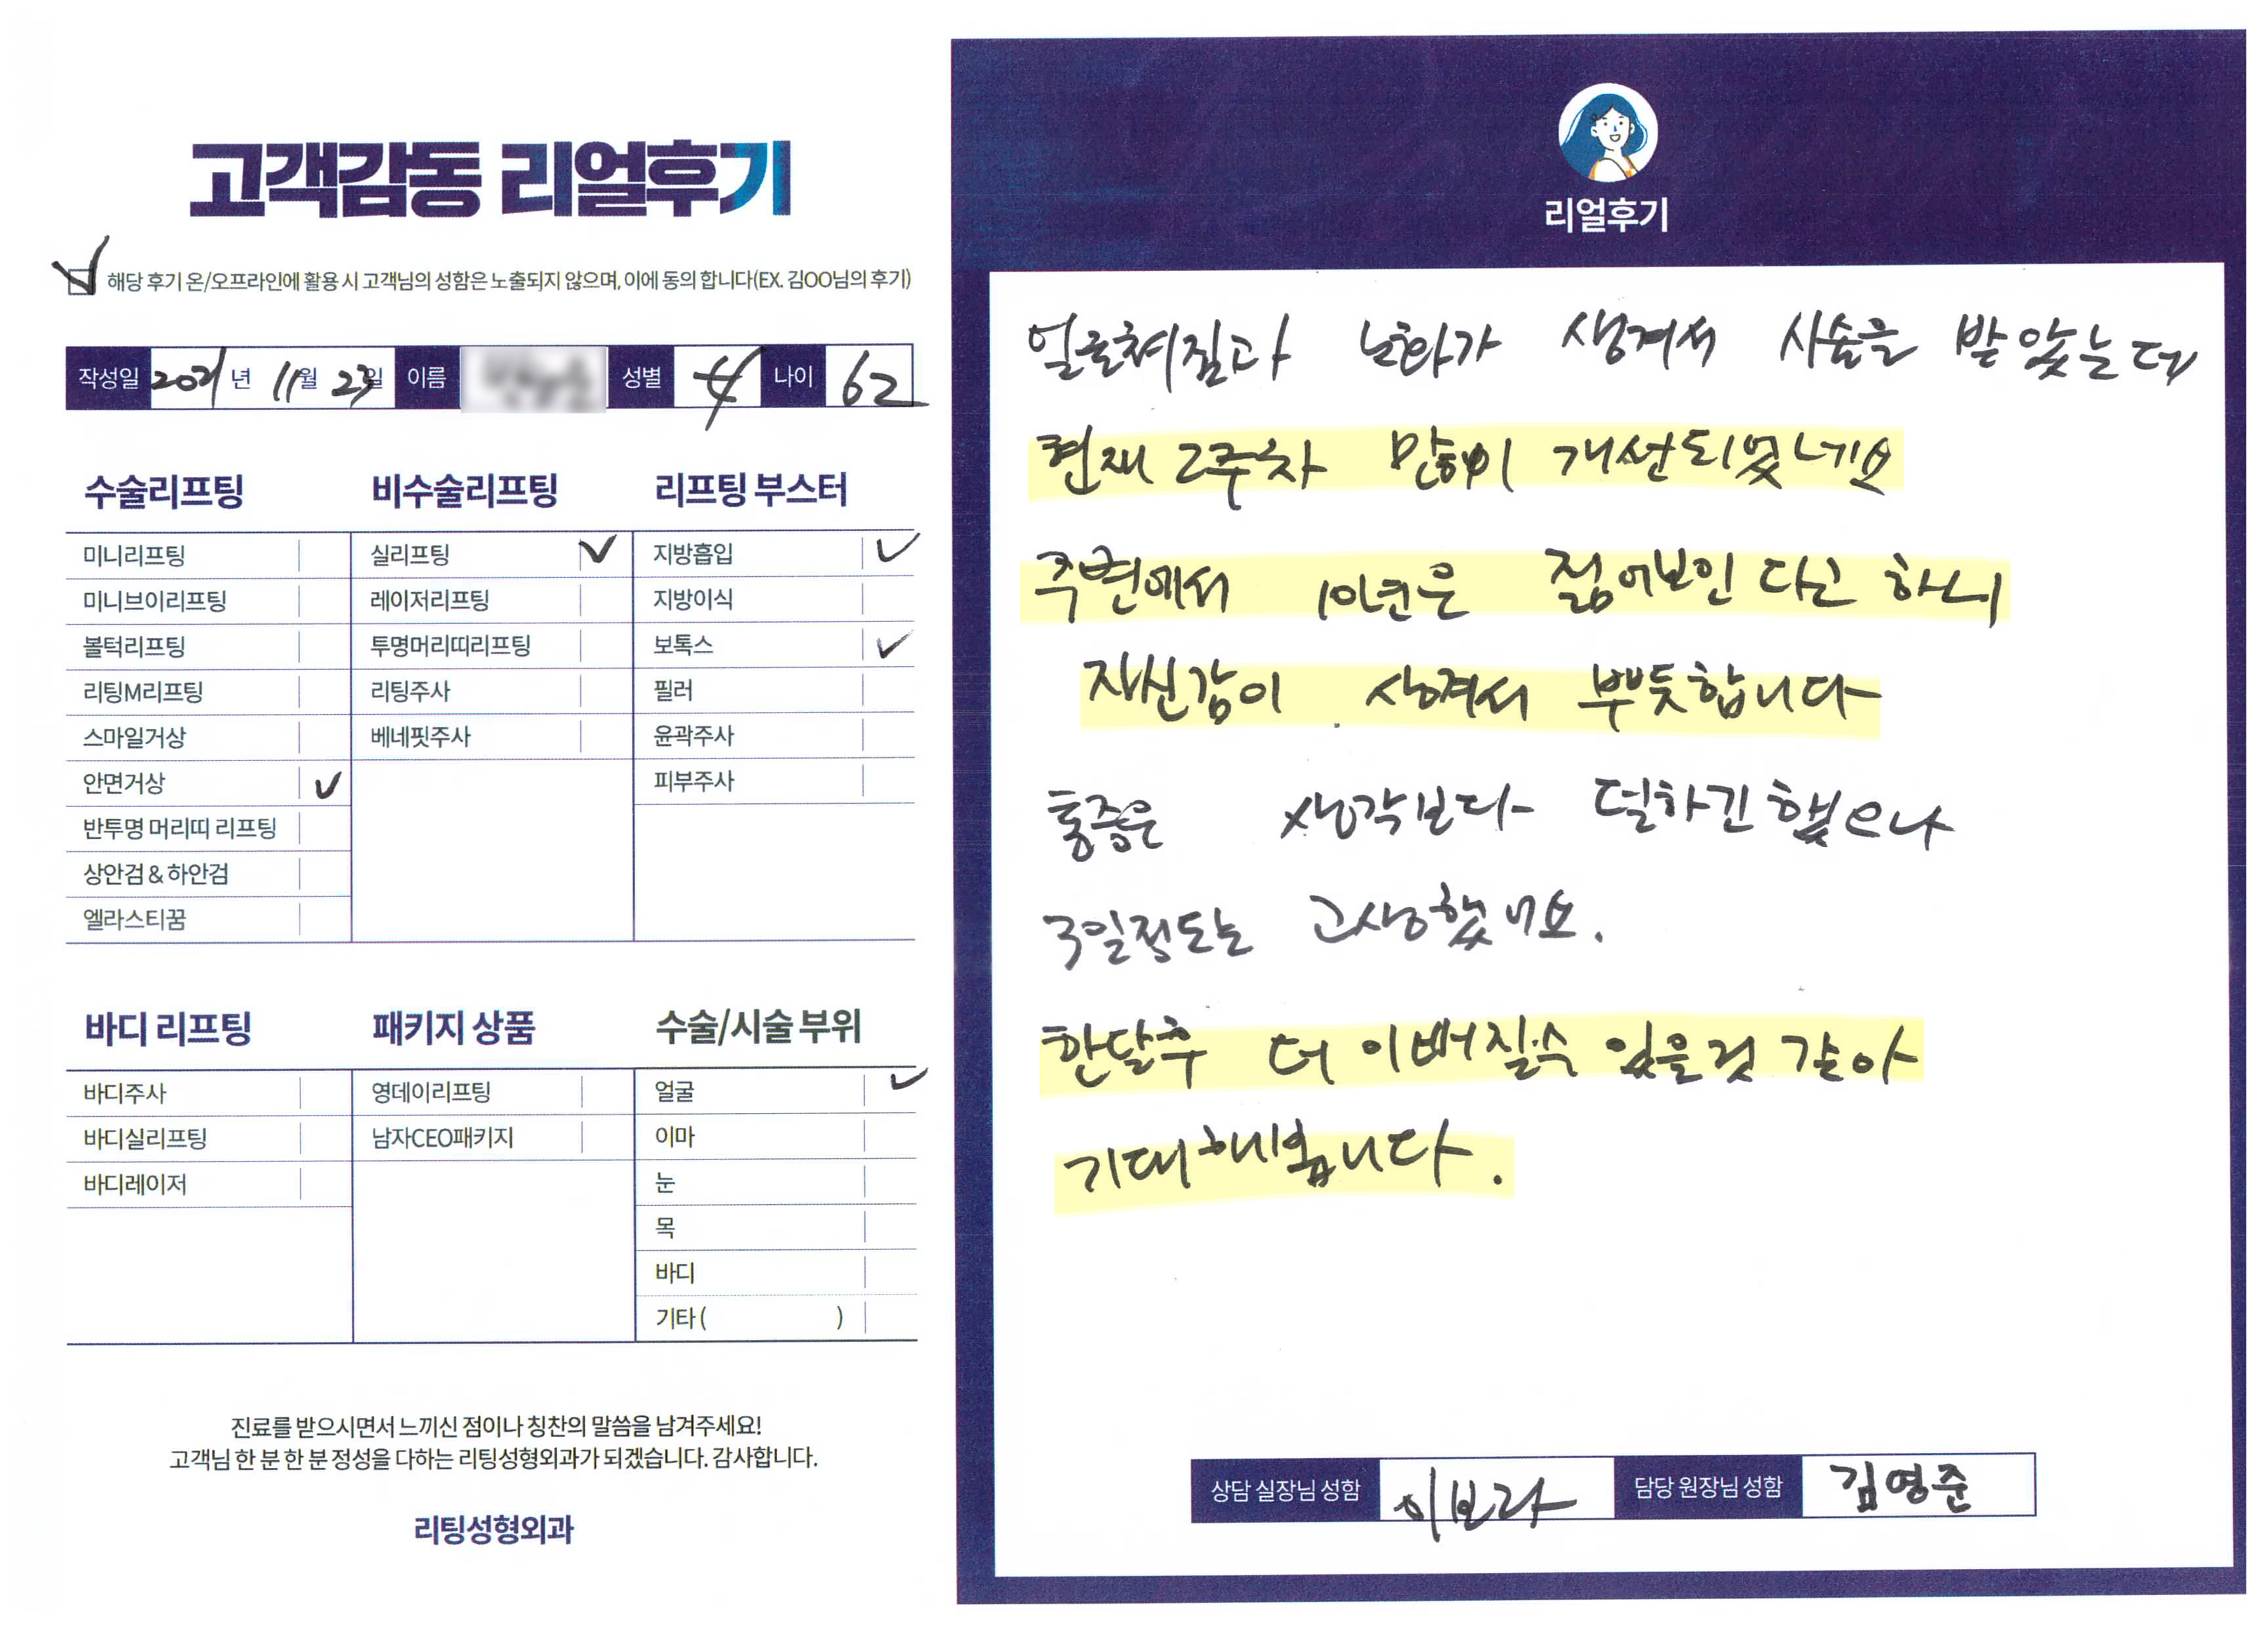 고객감동 리얼후기
해당 후기 온/오프라인에 활용 시 고객님의 성함은 노출되지 않으며, 이에 동의 합니다(EX. 김OO님의 후기)
작성일 2021년 11월 23일 이름 성별 나이 62
수술리프팅
미니리프팅
미니브이리프팅
볼턱리프팅
리팅M리프팅
스마일거상
안면거상 ✓
반투명 머리띠 리프팅
상안검 & 하안검
엘라스티꿈
비수술리프팅
실리프팅 ✓
레이저리프팅
투명머리띠리프팅
리팅주사
베네핏주사
리프팅 부스터
지방흡입 ✓
지방이식
보톡스 ✓
필러
윤곽주사
피부주사
바디 리프팅
바디주사
바디실리프팅
바디레이저
패키지 상품
영데이리프팅
남자CEO패키지
수술/시술 부위
얼굴 ✓
이마
눈
목
바디
기타 ( )
진료를 받으시면서 느끼신 점이나 칭찬의 말씀을 남겨주세요!
고객님 한 분 한 분 정성을 다하는 리팅성형외과가 되겠습니다. 감사합니다.
리팅성형외과
리얼후기
얼굴쳐짐과 노화가 생겨서 시술을 받았는데
현재 2주차 많이 개선되었네요
주변에서 10년은 젊어보인다고 하니
자신감이 생겨서 뿌듯합니다
통증은 생각보다 덜하긴 했으나
3일정도는 고생했네요.
한달후 더 이뻐질수 있을것 같아
기대해봅니다.
상담 실장님 성함 이보라 담당 원장님 성함 김영준